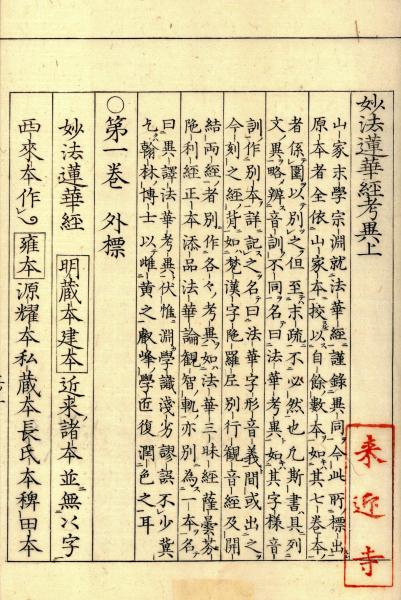 妙法蓮華經考異上
山家末學宗淵就法華經謹錄異同今此所標出
原本者全依山家本挍以自餘數本如其七卷本
者係圍以別之但至末疏不必然也凡斯書具列
文異略辨音訓不同名曰法華考異如其字樣音
訓作別本詳記之名曰法華字形音義間或出之
今刻之經背如梵漢字陁羅尼別行觀音經及開
結兩經者別作各々考異如法華三昧經薩曇芬
陁利經正本添品法華論觀智軌亦別為一本名
曰異譯法華考異伏惟淵學識淺劣謬誤不少冀
乞翰林博士以雌黃之叡峰學匠復潤色之耳
○第一卷 外標
妙法蓮華經 明藏本建本近来諸本並無以字
西來本作乀 雍本源耀本私藏本長氏本稗田本
来迎寺